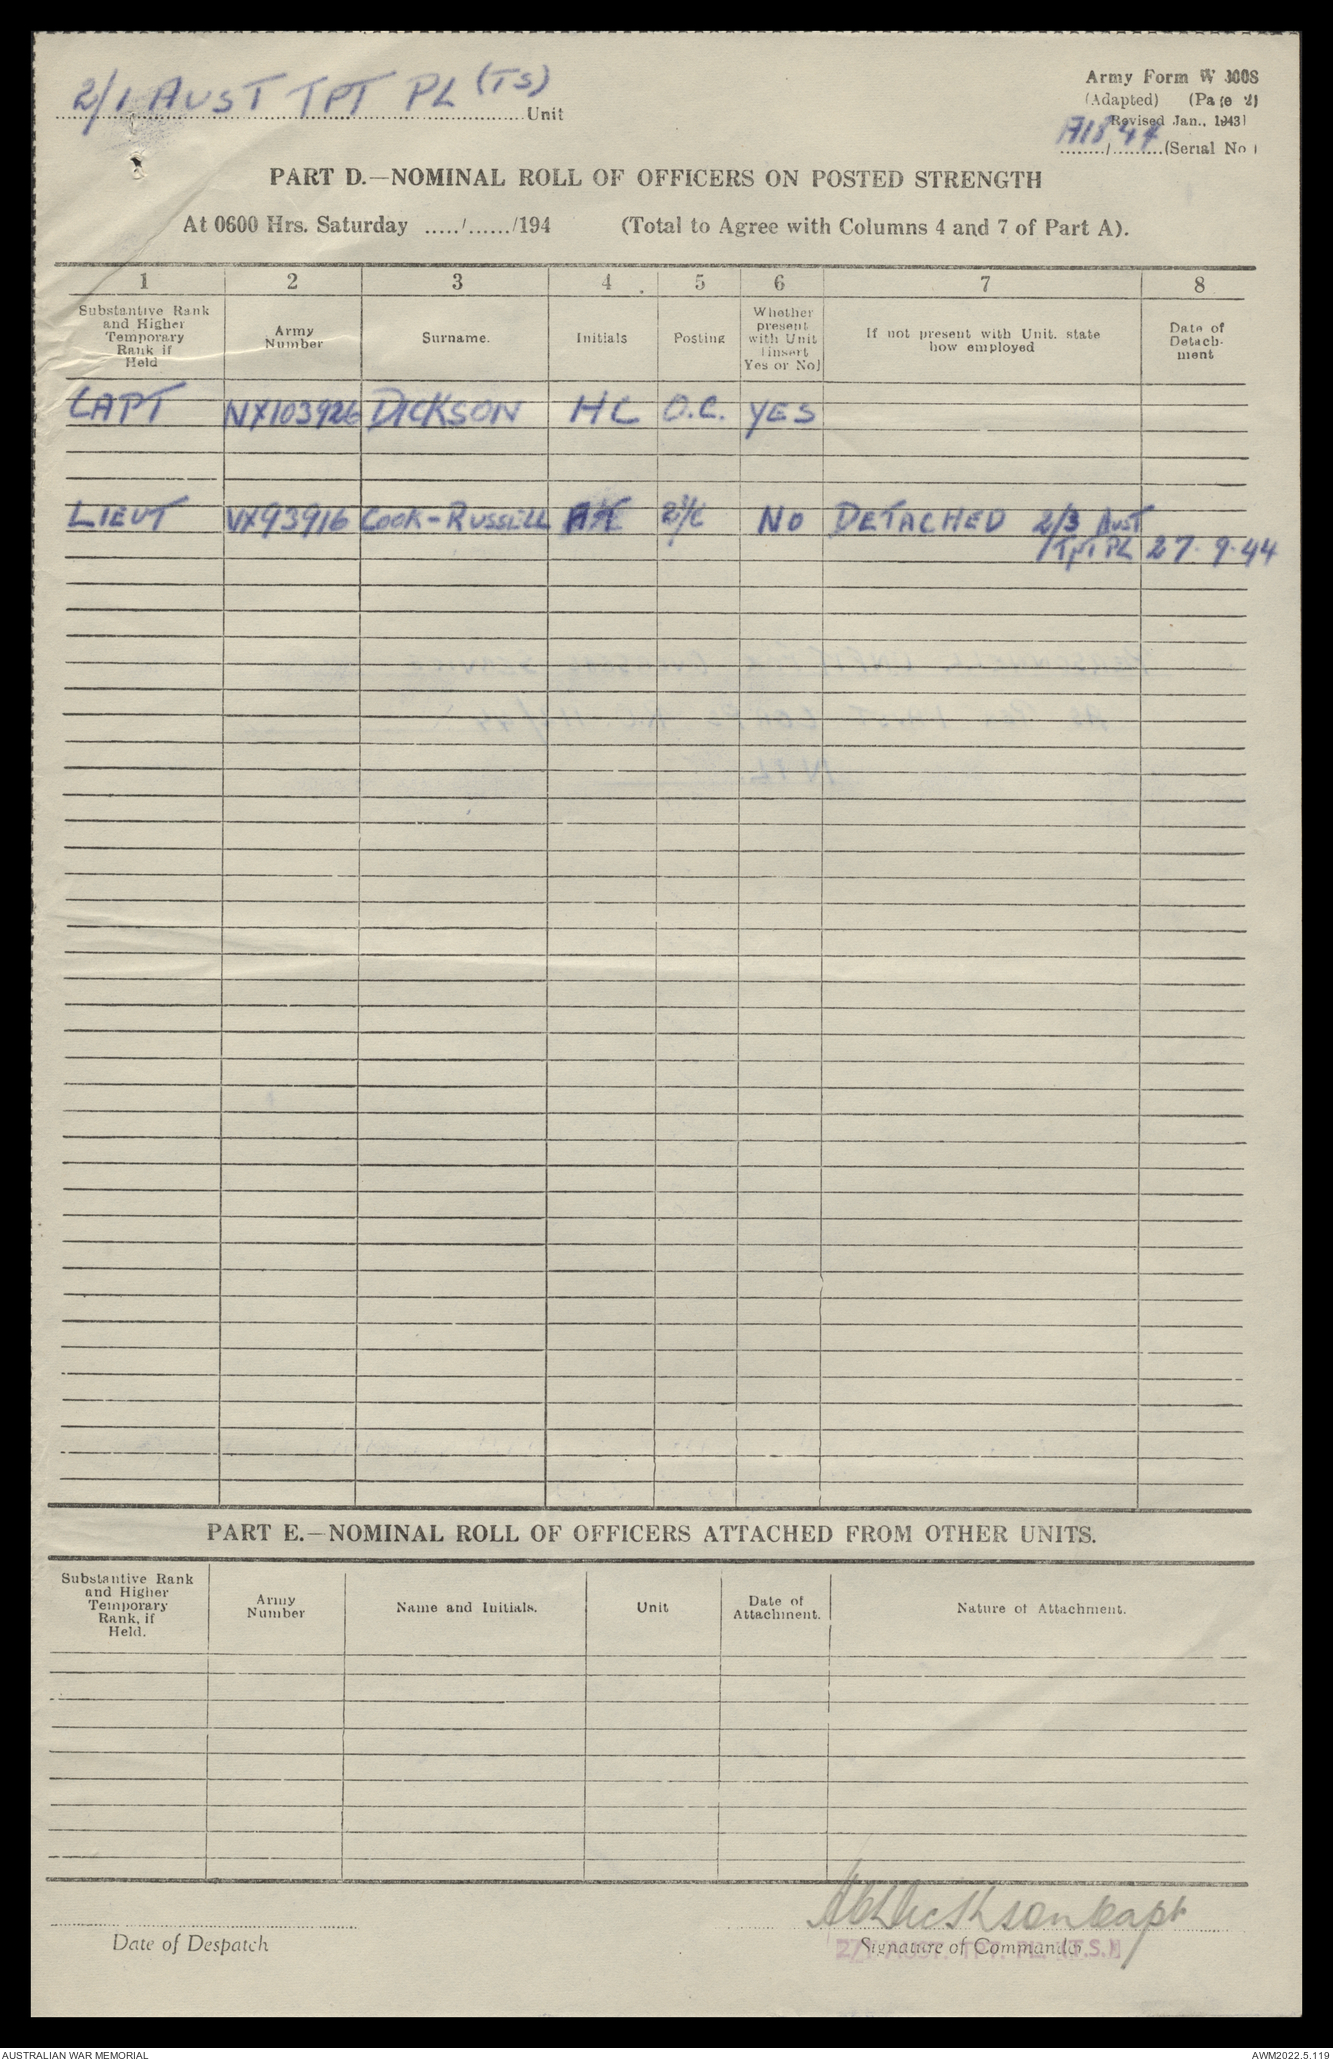 2/1 AUST TPT PL (TS) Unit
Army Form W 3008
(Adapted) (Page 2)
Revised Jan., 1943)
(Serial No )
PART D.—NOMINAL ROLL OF OFFICERS ON POSTED STRENGTH
At 0600 Hrs. Saturday ...../....../194 (Total to Agree with Columns 4 and 7 of Part A).
1 2 3 4 5 6 7 8
Substantive Rank and Higher Temporary Rank if Held
Army Number
Surname.
Initials
Posting
Whether present with Unit (insert Yes or No)
If not present with Unit. state how employed
Date of Detach- ment
CAPT NX103926 DICKSON HC O.C. YES
LIEUT VX93916 COOK-RUSSELL 2I/C NO DETACHED 2/3 AUST
TPT PL 27.9.44
PART E.—NOMINAL ROLL OF OFFICERS ATTACHED FROM OTHER UNITS.
Substantive Rank and Higher Temporary Rank, if Held.
Army Number
Name and Initials.
Unit
Date of Attachment.
Nature of Attachment.
HC Dickson Capt
Date of Despatch
Signature of Commander
2/1 AUST. TPT. PL. (T.S.)
AUSTRALIAN WAR MEMORIAL AWM2022.5.119